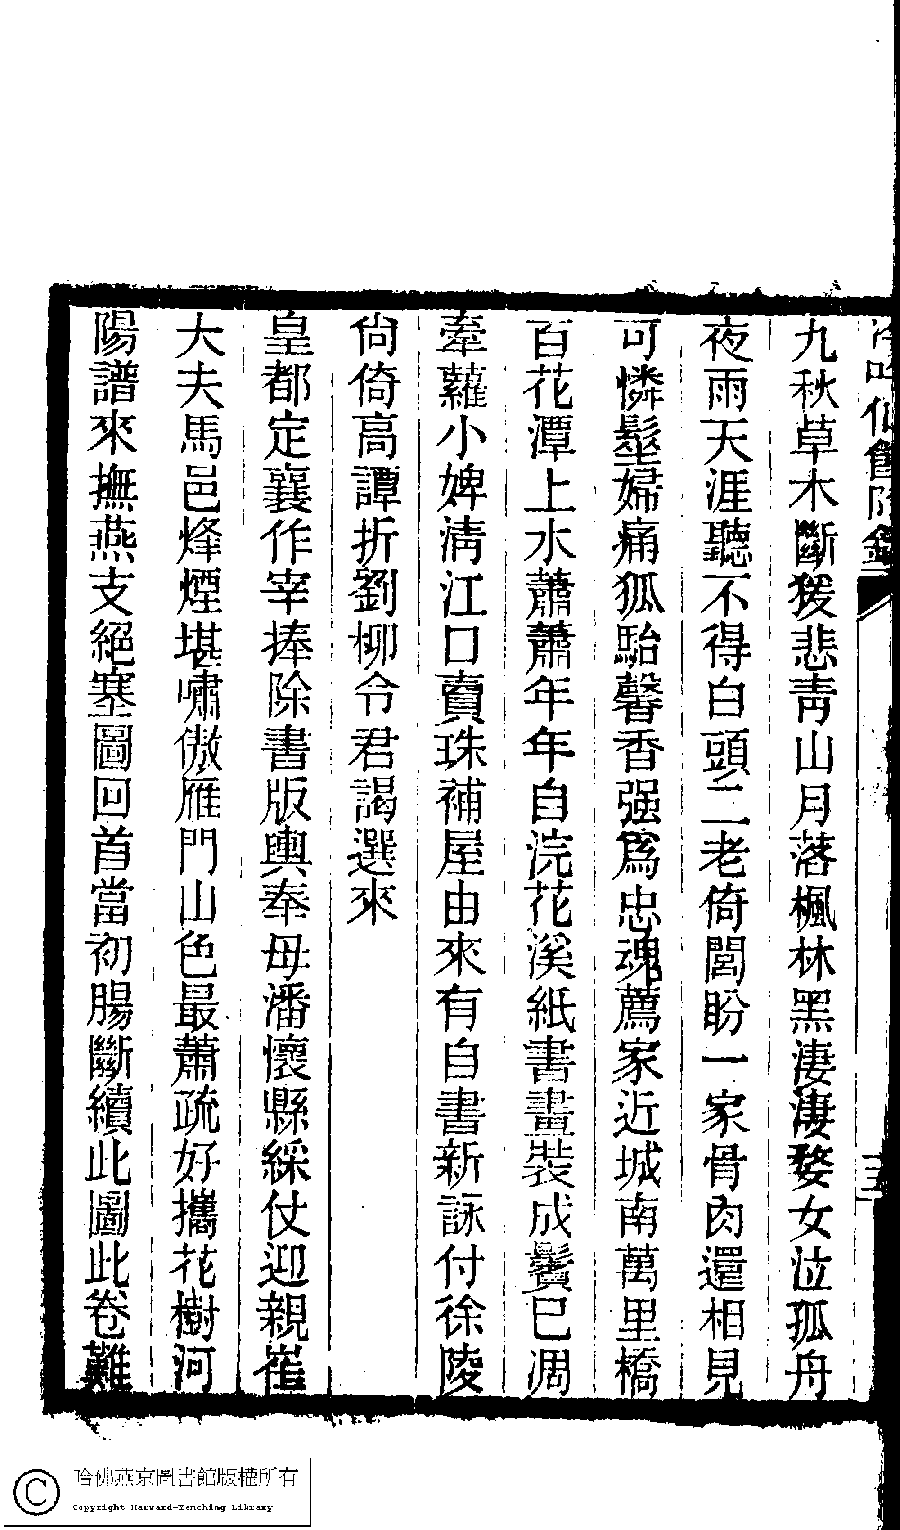 九秋草木斷猨悲青山月落楓林黑淒淒婺女泣孤舟
夜雨天涯聽不得白頭二老倚閭盼一家骨肉還相見
可憐髽婦痛狐駘馨香强爲忠魂薦家近城南萬里橋
百花潭上水蕭蕭年年自浣花溪紙書畫裝成鬢已凋
牽蘿小婢淸江口賣珠補屋由來有自書新詠付徐陵
尙倚高譚折劉柳令君謁選來
皇都定襄作宰捧除書版輿奉母潘懷縣綵仗迎親崔
大夫馬邑烽煙堪嘯傲雁門山色最蕭疏好攜花樹河
陽譜來撫燕支絕塞圖回首當初腸斷續此圖此卷難
哈佛燕京圖書館版權所有
Copyright Harvard-Yenching Library